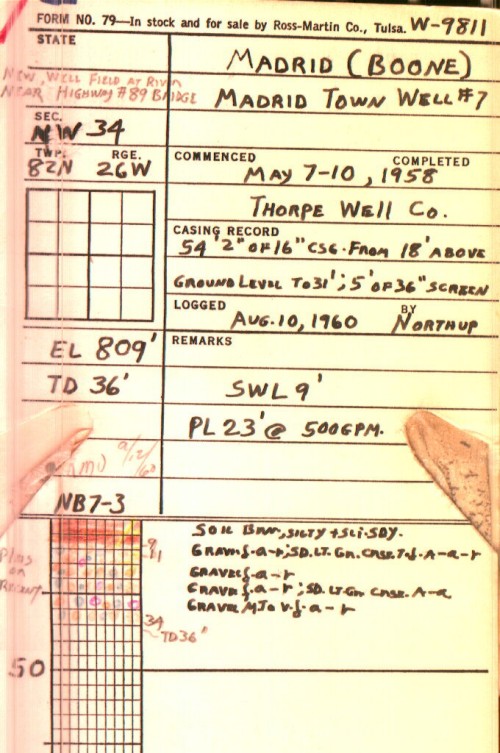 FORM NO. 79—In stock and for sale by Ross-Martin Co., Tulsa. W-9811
STATE
MADRID (BOONE)
NEW WELL FIELD AT RIVER
NEAR HIGHWAY #89 BRIDGE
MADRID TOWN WELL #7
SEC.
NW 34
TWP. RGE.
82N 26W
COMMENCED COMPLETED
MAY 7-10, 1958
THORPE WELL CO.
CASING RECORD
54'2" OF 16" CSG. FROM 18' ABOVE
GROUND LEVEL TO 31'; 5' OF 36" SCREEN
LOGGED BY
AUG. 10, 1960 NORTHUP
EL 809'
REMARKS
TD 36'
SWL 9'
PL 23' @ 500 GPM.
NB7-3
SOIL BRN, SILTY + SLI. SDY.
GRAVEL
GRAVEL f.-a-r
GRAVEL f.-a-r; SD. LT. GR. CRSE. A-a
GRAVEL M To v.f.-a-r
9
11
34
TD 36'
50